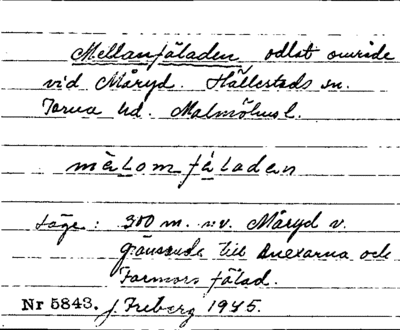 Mellanfäladen odlat område
vid Måryd. Hällestads sn.
Torna hd. Malmöhus l.
mälomfäladen
Läge: 300 m. n.v. Måryd v.
gränsande till Anexarna och
Farmors fälad.
Nr 5843. J. Freberg 1945.